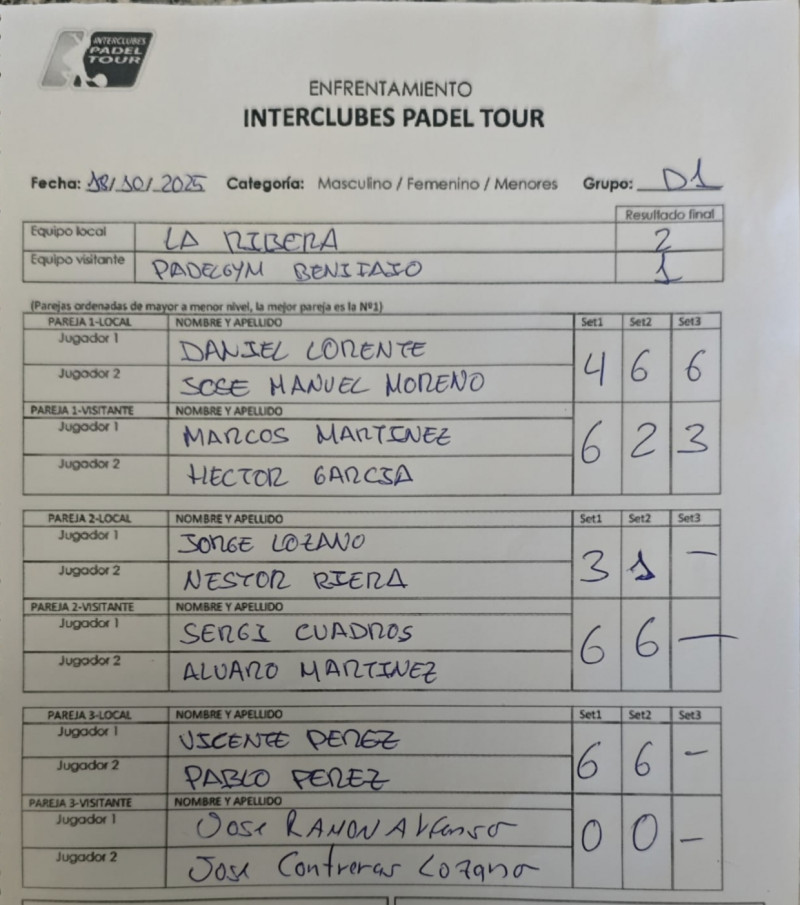 INTERCLUBES
PADEL
TOUR
ENFRENTAMIENTO
INTERCLUBES PADEL TOUR
Fecha: 18/10/2025 Categoría: Masculino / Femenino / Menores Grupo: D1
Resultado final
Equipo local LA RIBERA 2
Equipo visitante PADELGYM BENIFAIO 1
(Parejas ordenadas de mayor a menor nivel, la mejor pareja es la Nº1)
PAREJA 1-LOCAL NOMBRE Y APELLIDO Set1 Set2 Set3
Jugador 1 DANIEL LORENTE
4 6 6
Jugador 2 JOSE MANUEL MORENO
PAREJA 1-VISITANTE NOMBRE Y APELLIDO
Jugador 1 MARCOS MARTINEZ
6 2 3
Jugador 2 HECTOR GARCIA
PAREJA 2-LOCAL NOMBRE Y APELLIDO Set1 Set2 Set3
Jugador 1 JORGE LOZANO
3 1 -
Jugador 2 NESTOR RIERA
PAREJA 2-VISITANTE NOMBRE Y APELLIDO
Jugador 1 SERGI CUADROS
6 6 -
Jugador 2 ALVARO MARTINEZ
PAREJA 3-LOCAL NOMBRE Y APELLIDO Set1 Set2 Set3
Jugador 1 VICENTE PEREZ
6 6 -
Jugador 2 PABLO PEREZ
PAREJA 3-VISITANTE NOMBRE Y APELLIDO
Jugador 1 Jose RAMON Alfonso
0 0 -
Jugador 2 Jose Contreras Lozano